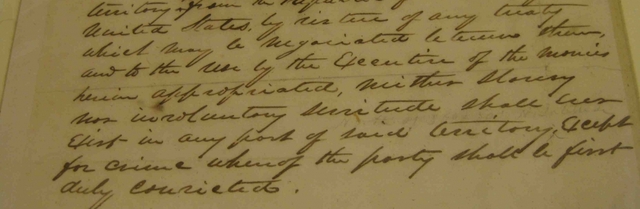 territory from the Republic of
United States, by virtue of any treaty
which may be negociated between them,
and to the use by the Executive of the monies
herein appropriated, neither slavery
nor involuntary servitude shall ever
exist in any part of said territory, except
for crime whereof the party shall be first
duly convicted.